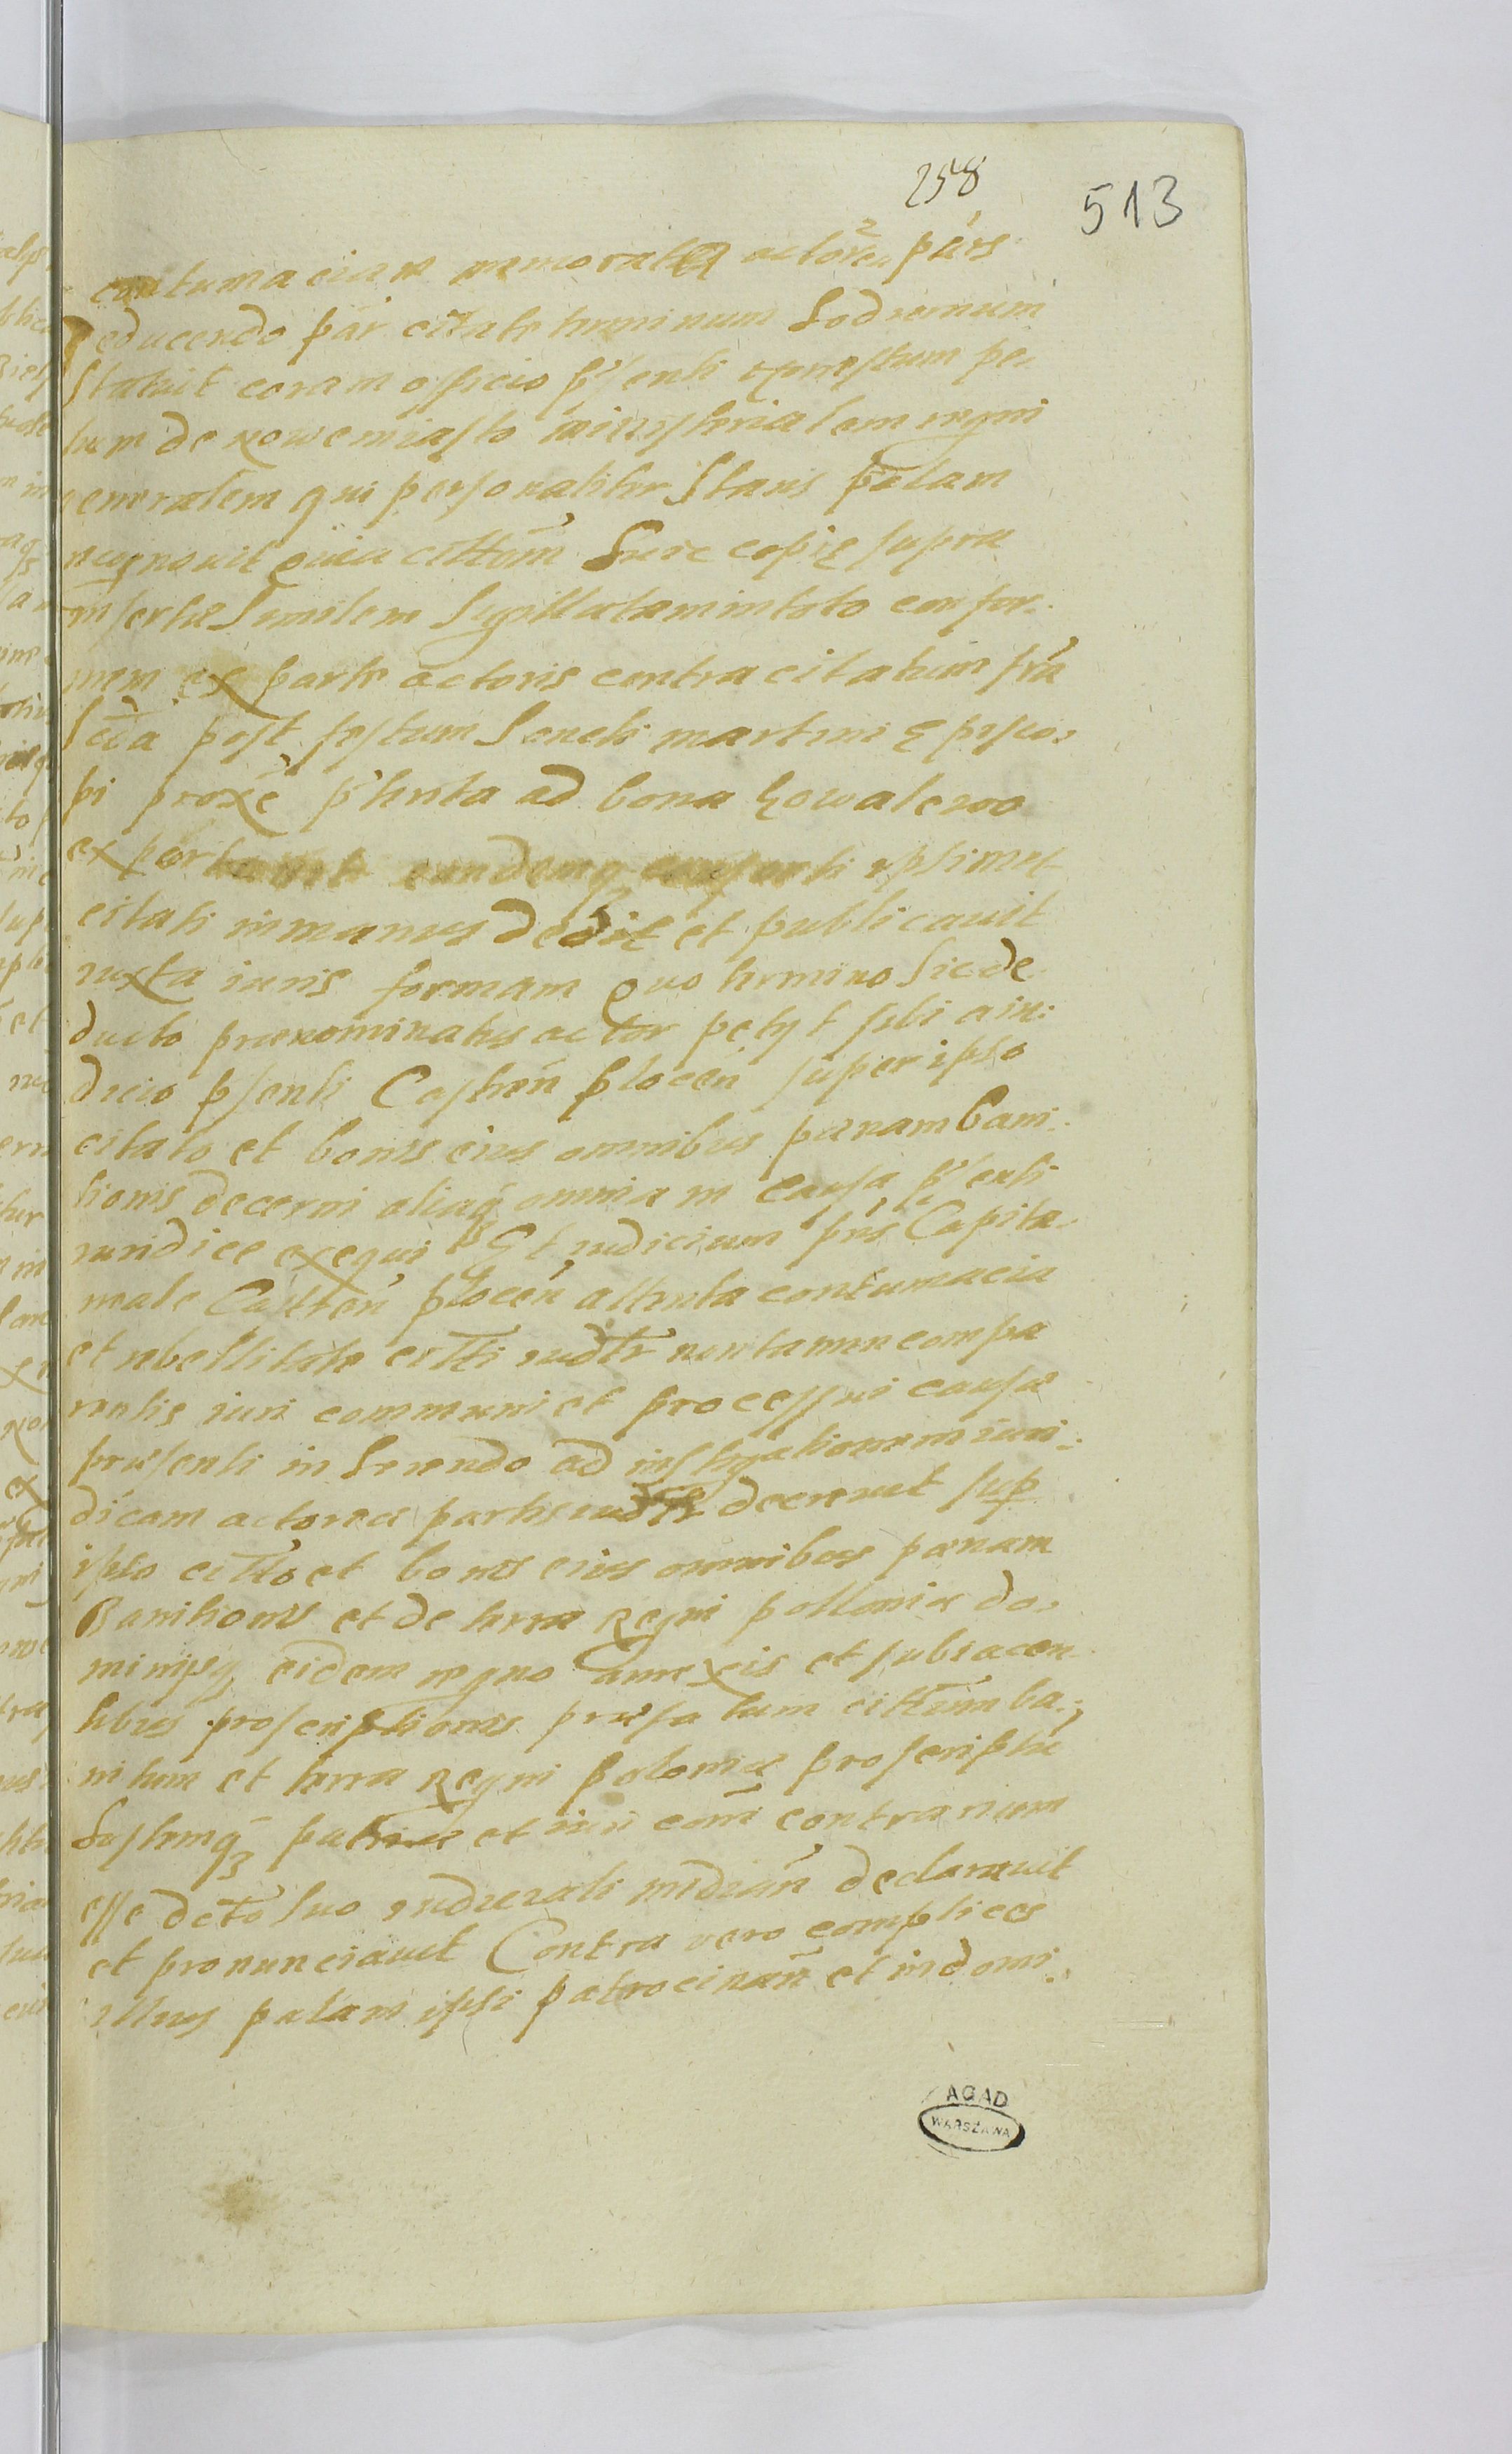 258
513
contumaciam memorata actorea pars
Deducendo par citats terminum hodiernum
Statuit coram officio pſenti honestum pe-
trum de Nowemiasto ministerialem regni
generalem qui personaliter Stans palam
recognovit quia cittōm huic copię supra
inserta Similem Sigillatam in toto confor-
mem ex parte actoris contra citatum fria
Scda post festum Sancti martini Episco-
pi proxe pterita ad bona kowalewo
exportavit eandemq ipsimet
citati in manus dedit et publicavit
iuxta iuris formam Quo termino Sic de
ducto prænominatus actor petyt sibi a iu-
dicio psenti Castren plocen super ipso
citato et bonis eius omnibus pœnam bani-
tionis decerni aliaq omnia in causa psenti
iuridice exequi Et iudicium pns Capita-
neale Castren plocen attenta contumacia
et rebellitate citti iudtr non tamen compa
rentis iuri communi et processui causæ
præsenti in hærendo ad instigationem iuri-
dicam actoreæ partis decrevit sup
ipso citto et bonis eius omnibus pœnam
Banitionis et de terra Regni polloniæ do-
minijsq eidem regno annexis et subiacen
tibus proscriptionis præfatum cittum ba-
nitum et terra Regni poloniæ proscriptu
hostemq patriæ et iuri com contrarium
esse dcto suo iudiciali mdian declaravit
et pronunciavit Contra vero complices
illius palam ipsi patrocinan et in domi-
AGAD
WARSZAWA